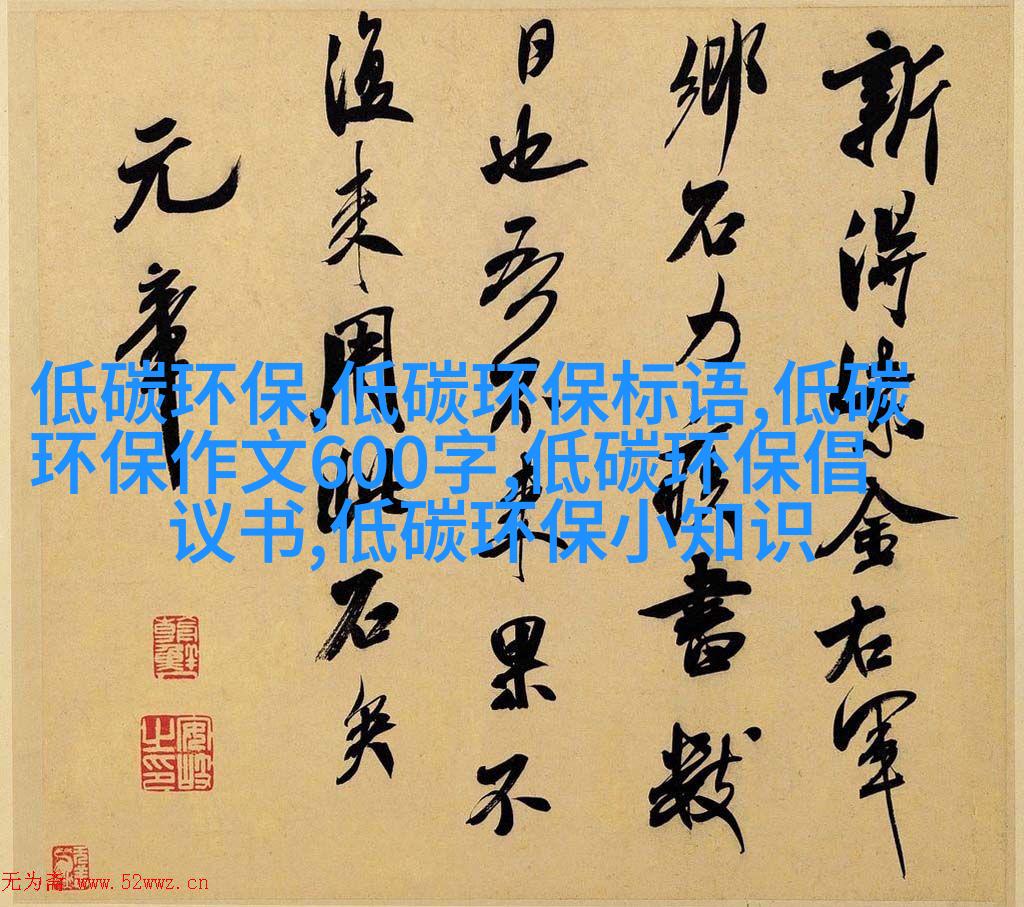 新得紫金右軍
鄉石力疾書數
日也吾不來果不
復來用此石矣
元章
低碳环保,低碳环保标语,低碳
环保作文600字,低碳环保倡
议书,低碳环保小知识
安岐之印
无为斋 www.52wwz.cn